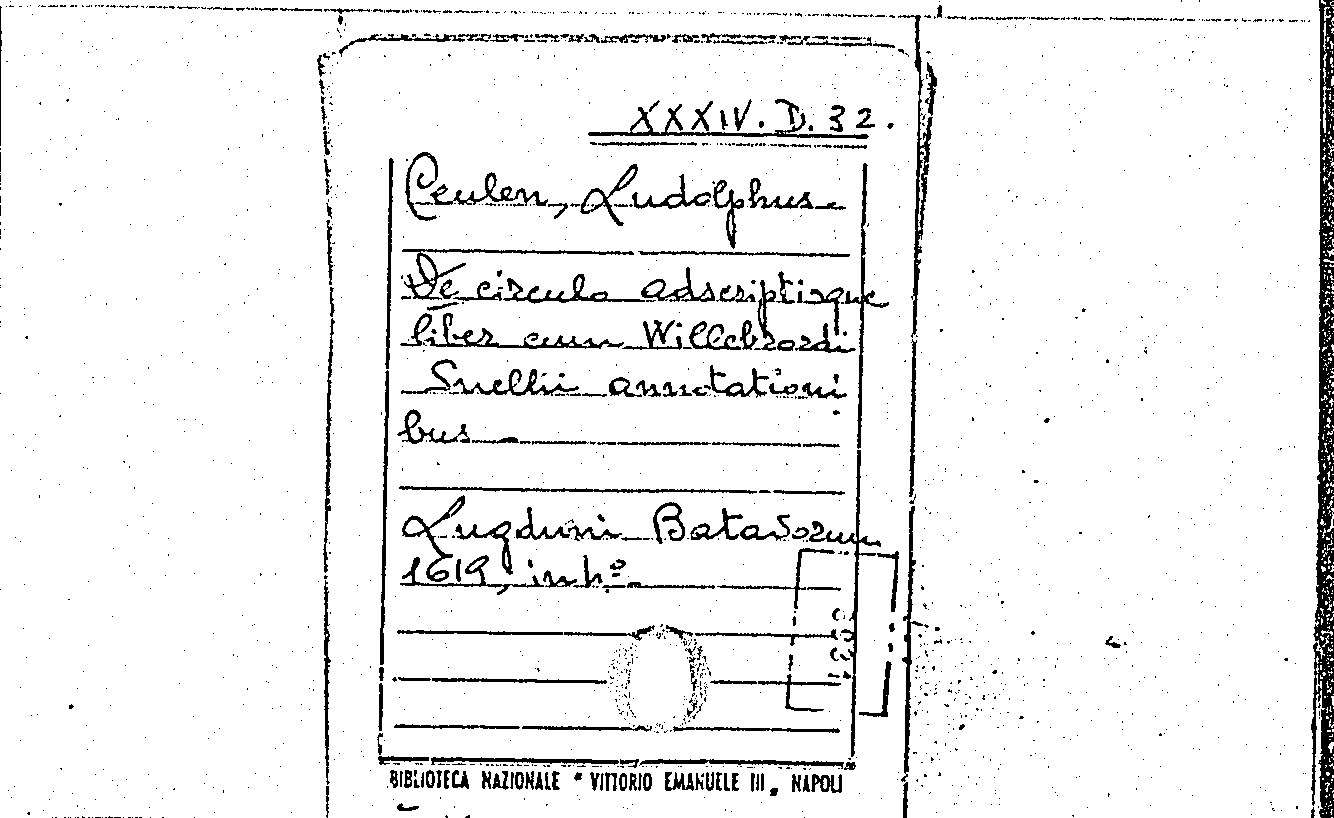 XXXIV. D. 32.
Ceulen, Ludolphus.
De circulo adscriptisque
liber cum Willebrordi
Snellii annotationi
bus.
Lugduni Batavorum
1619, in 4º.
BIBLIOTECA NAZIONALE " VITTORIO EMANUELE III „ NAPOLI